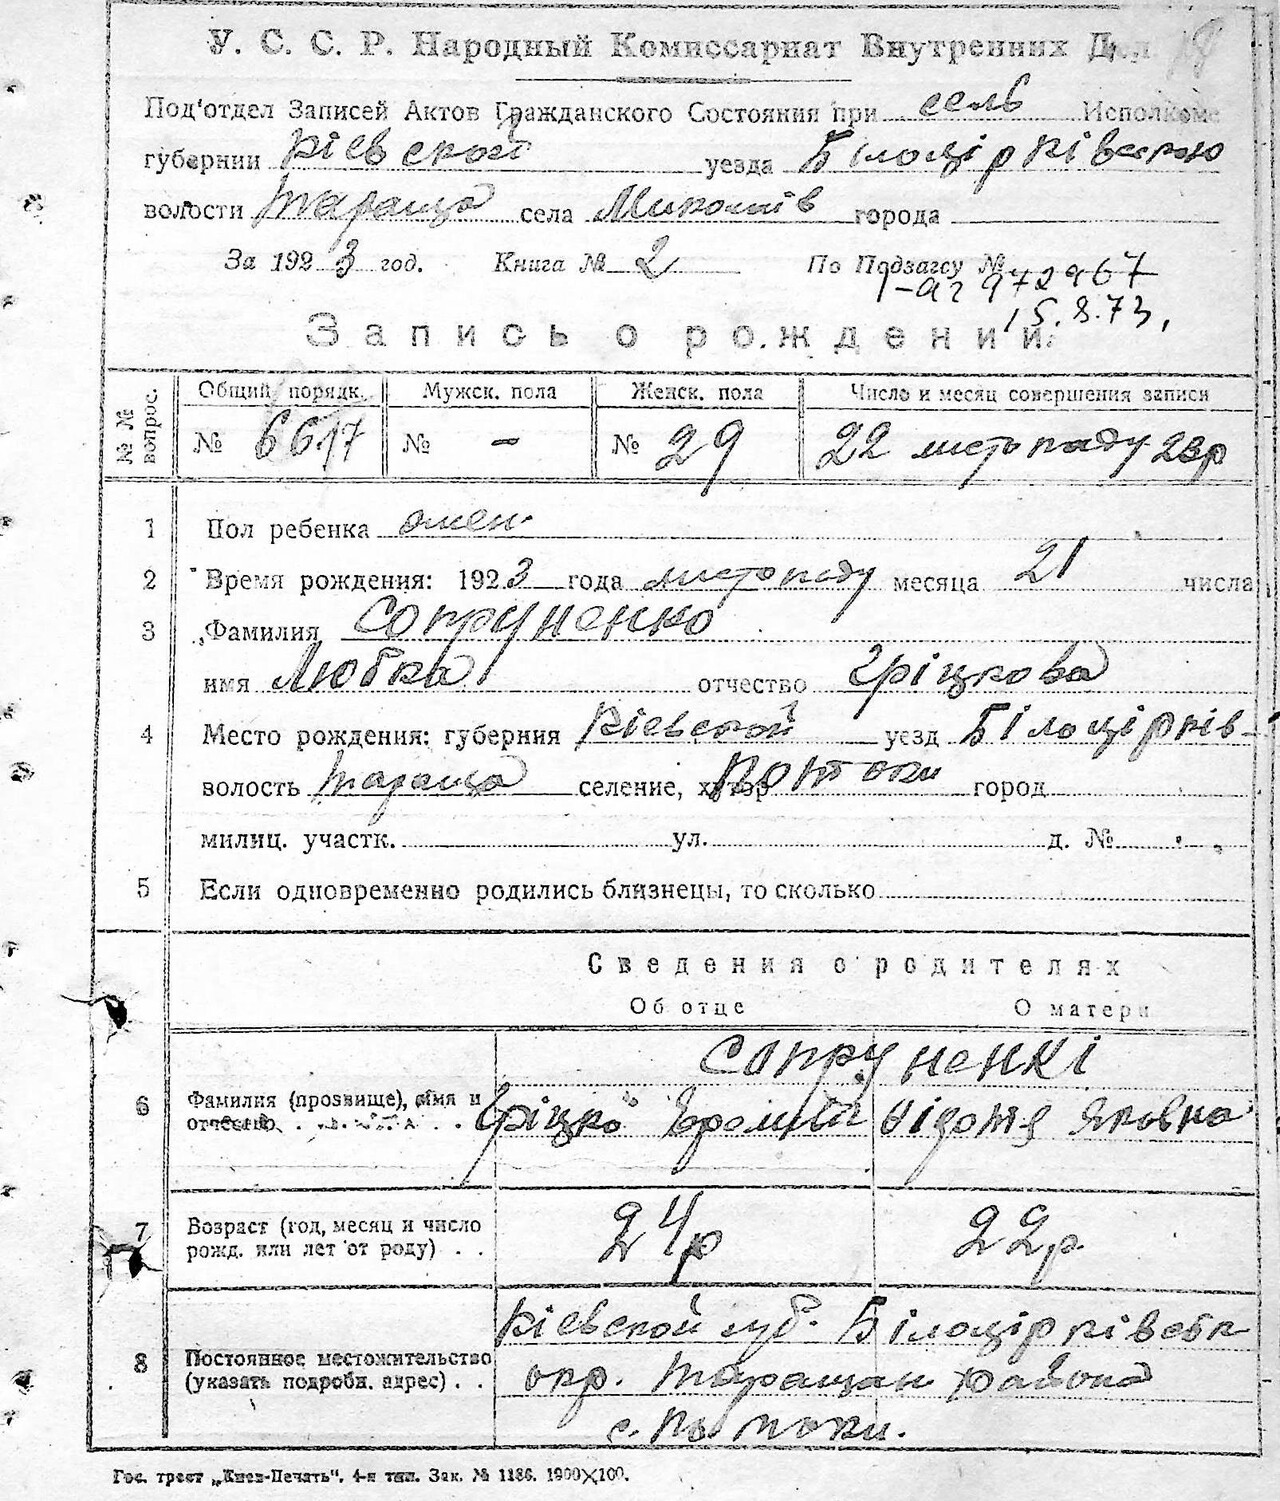 У. С. С. Р. Народный Комиссариат Внутренних Дел 18
Под'отдел Записей Актов Гражданского Состояния при сель Исполкоме
губернии Кіевской уезда Білоцірківскою
волости Тараща села Миколаїв города
За 1923 год. Книга № 2 По Подзагсу №
972967
15.8.73.
Запись о рождении
№ № вопрос. Общий порядк. Мужск. пола Женск. пола Число и месяц совершения записи
№ 6617 № - № 29 22 листопаду 23р
1 Пол ребенка жен.
2 Время рождения: 1923 года листопаду месяца 21 числа
3 Фамилия Сопруненко
имя Любка отчество Гріцкова
4 Место рождения: губерния Кіевской уезд Білоцірків-
волость Тараща селение, хутор Потоки город
милиц. участк. ул. д. №
5 Если одновременно родились близнецы, то сколько
Сведения о родителях
Об отце О матери
Сопруненкі
6 Фамилия (прозвище), имя и
отчество Гріцко Яковна
7 Возраст (год, месяц и число
рожд. или лет от роду) . . 24р 22р.
Кіевской губ. Білоцірківськ
8 Постоянное местожительство
(указать подробн. адрес) . . окр. Таращан района
с. Потоки.
Гос. трест „Киев-Печать". 4-я тип. Зак. № 1186. 1900×100.